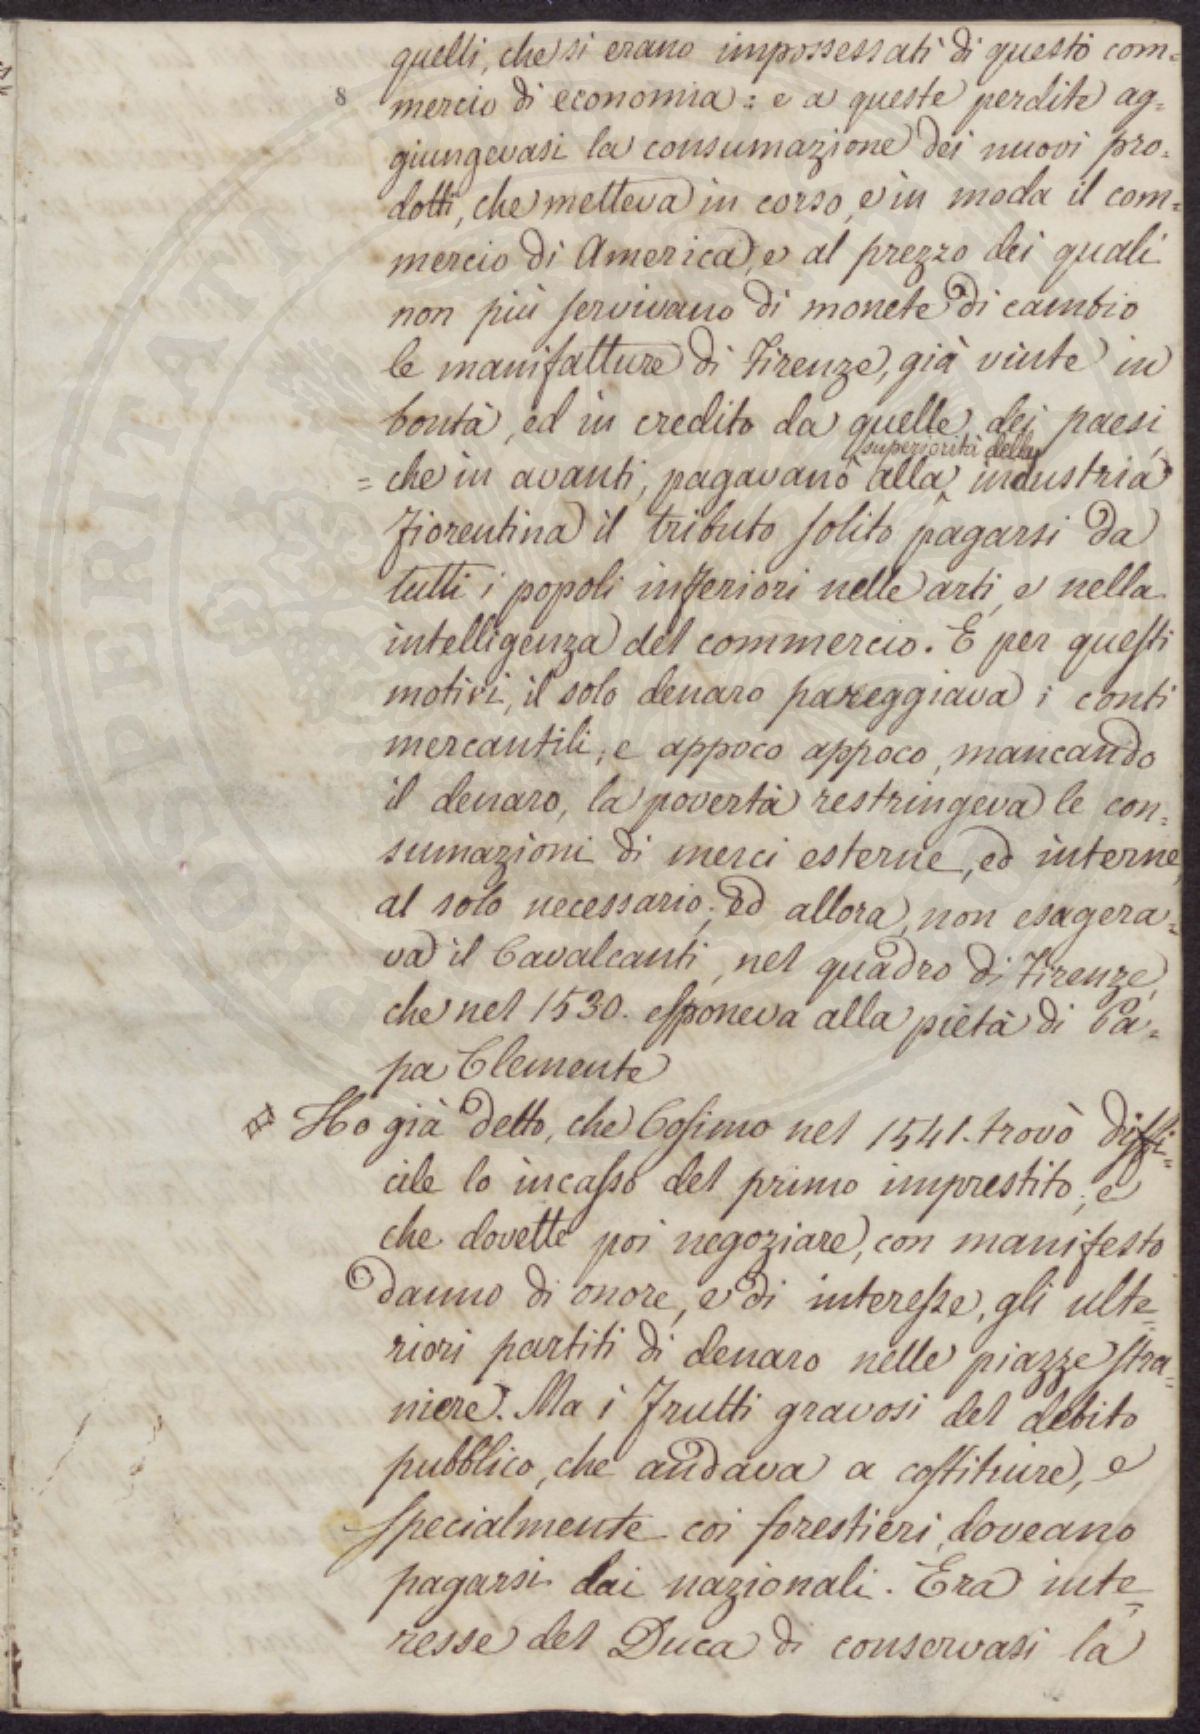 quelli, che si erano impossessati di questo com=
8 mercio di economia : e a queste perdite ag=
giungevasi la consumazione dei nuovi pro=
dotti, che metteva in corso, e in moda il com=
mercio di America, e al prezzo dei quali
non più servivano di monete di cambio
le manifatture di Firenze, già vinte in
bontà, ed in credito da quelle dei paesi,
superiorità della
= che in avanti, pagavano alla ^ industria
Fiorentina il tributo solito pagarsi da
tutti i popoli inferiori nelle arti, e nella
intelligenza del commercio. E per questi
motivi, il solo denaro pareggiava i conti
mercantili; e appoco appoco, mancando
il denaro, la povertà restringeva le con=
sumazioni di merci esterne, ed interne,
al solo necessario; ed allora, non esagera=
va il Cavalcanti, nel quadro di Firenze,
che nel 1530. esponeva alla pietà di Pa=
pa Clemente
Ho già detto, che Cosimo nel 1541. trovò diffi=
cile lo incasso del primo imprestito; e
che dovette poi negoziare, con manifesto
danno di onore, e di interesse, gli ulte=
riori partiti di denaro nelle piazze stra=
niere. Ma i frutti gravosi del debito
pubblico, che andava a costituire, e
specialmente coi forestieri, doveano
pagarsi dai nazionali. Era inte=
resse del Duca di conservasi la
SPERITATI